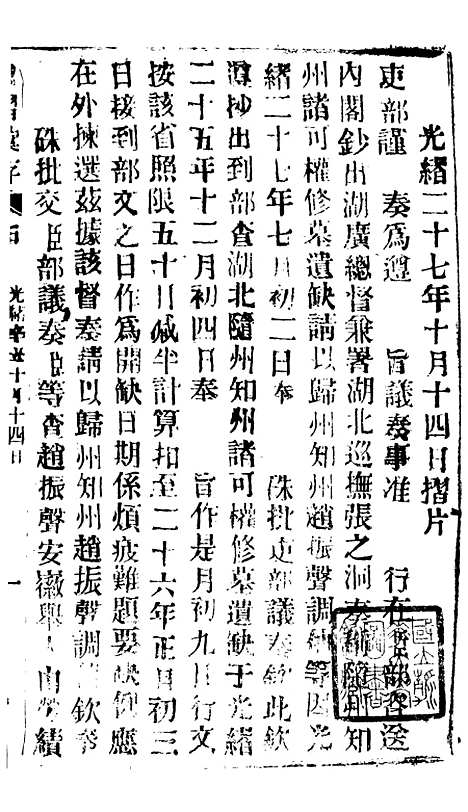 光緖二十七年十月十四日摺片
吏部謹　奏爲遵　旨議奏事准　行在吏部咨送
內閣鈔出湖廣總督兼署湖北巡撫張之洞奏稱隨州知
州諸可權修墓遺缺請以歸州知州趙振聲調補等因光
緖二十七年七月初二日奉　硃批吏部議奏欽此欽
遵抄出到部查湖北隨州知州諸可權修墓遺缺于光緖
二十五年十二月初四日奉　旨作是月初九日行文
按該省照限五十日減半計算扣至二十六年正月初三
日接到部文之日作爲開缺日期係煩疲難題要缺例應
在外揀選茲據該督奏請以歸州知州趙振聲調補欽奉
硃批交臣部議奏臣等查趙振聲安徽舉人由勞績
光緖十月十四日
一